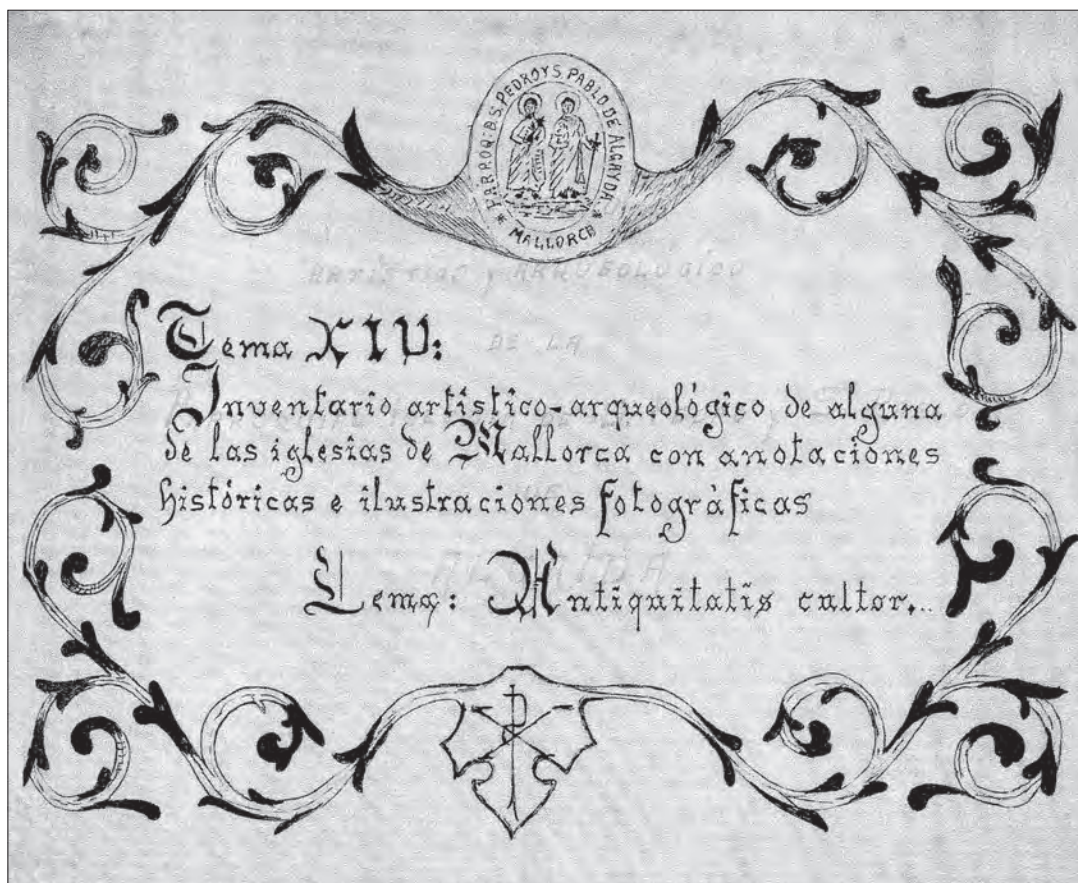 PARROQ: B.S. PEDRO Y S. PABLO DE ALGAYDA
MALLORCA
ARTÍSTICO y ARQUEOLOGICO
DE LA
Tema XIV:
Inventario artístico-arqueológico de alguna
de las iglesias de Mallorca con anotaciones
históricas e ilustraciones fotográficas
ALGAIDA
Lema: Antiquitatis cultor...